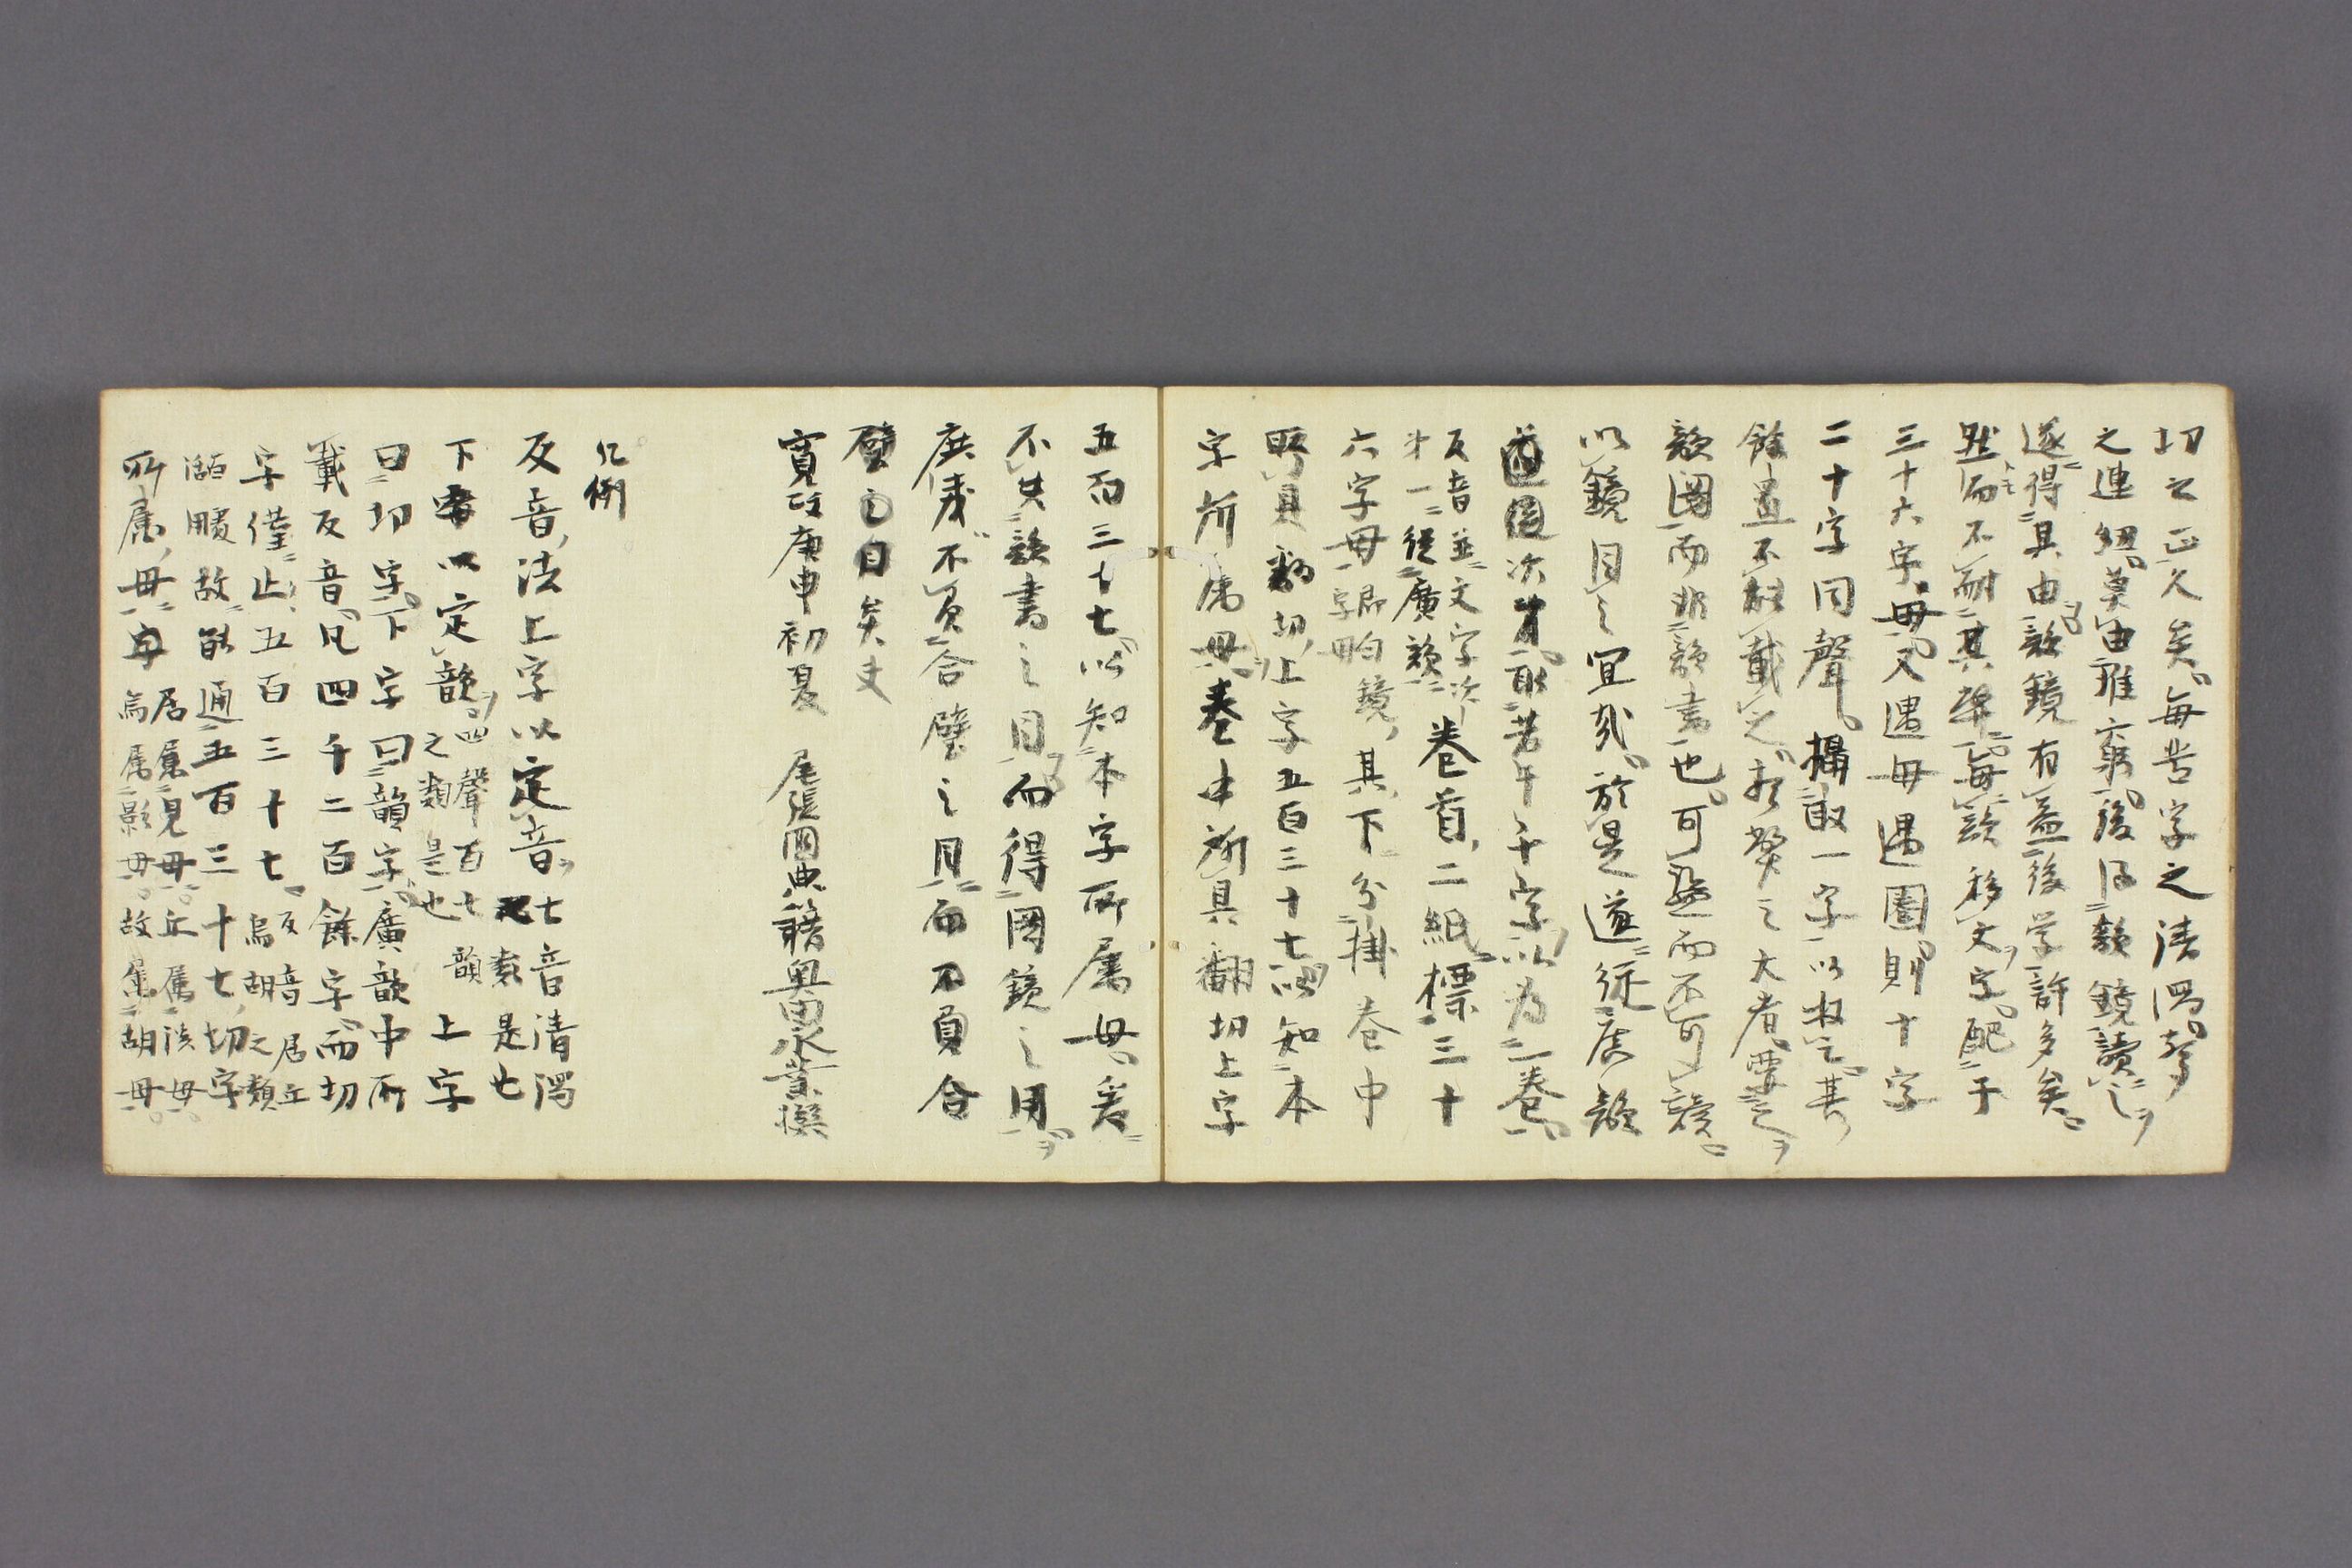 切之正久矣毎苦字之清濁聲
之連紐莫由雅窮後得韻鏡讀之
遂得其由韻鏡有益後学許多矣
然而不耐其繁毎韻移文字配于
三十六字母又遇母遇圏則十字
二十字同聲撮取一字以收之其
餘畫不能載之於弊之大者要之
韻圖而非韻書也可鑒而不可
以鏡目之宜哉於是遂従廣韻
次 取若干千字以為二巻
反音並文字次
才一従廣韻
巻首二紙標三十
六字母
字母
即白
鏡其下分掛巻中
所具翻切上字五百三十七以知本
字所属母巻中所具翻切上字
五百三十七以知本字所属母爰
不失韻書之目而得圖鏡之用
庶幾不負合璧之目而不負合
璧之目矣
寛政庚申初夏 尾張國典籍奥田永業撰
凡例
反音法上字以定音
七音清濁
之類是也
下字以定韻
四聲百七韻
之類是也
上字
曰切字下字曰韻字廣韻中所
載反音凡四千二百餘字而切
字僅止五百三十七
反音居丘
烏胡之類
故能通五百三十七切字
所属母
居属見母丘属渓母
烏属影母故属胡母